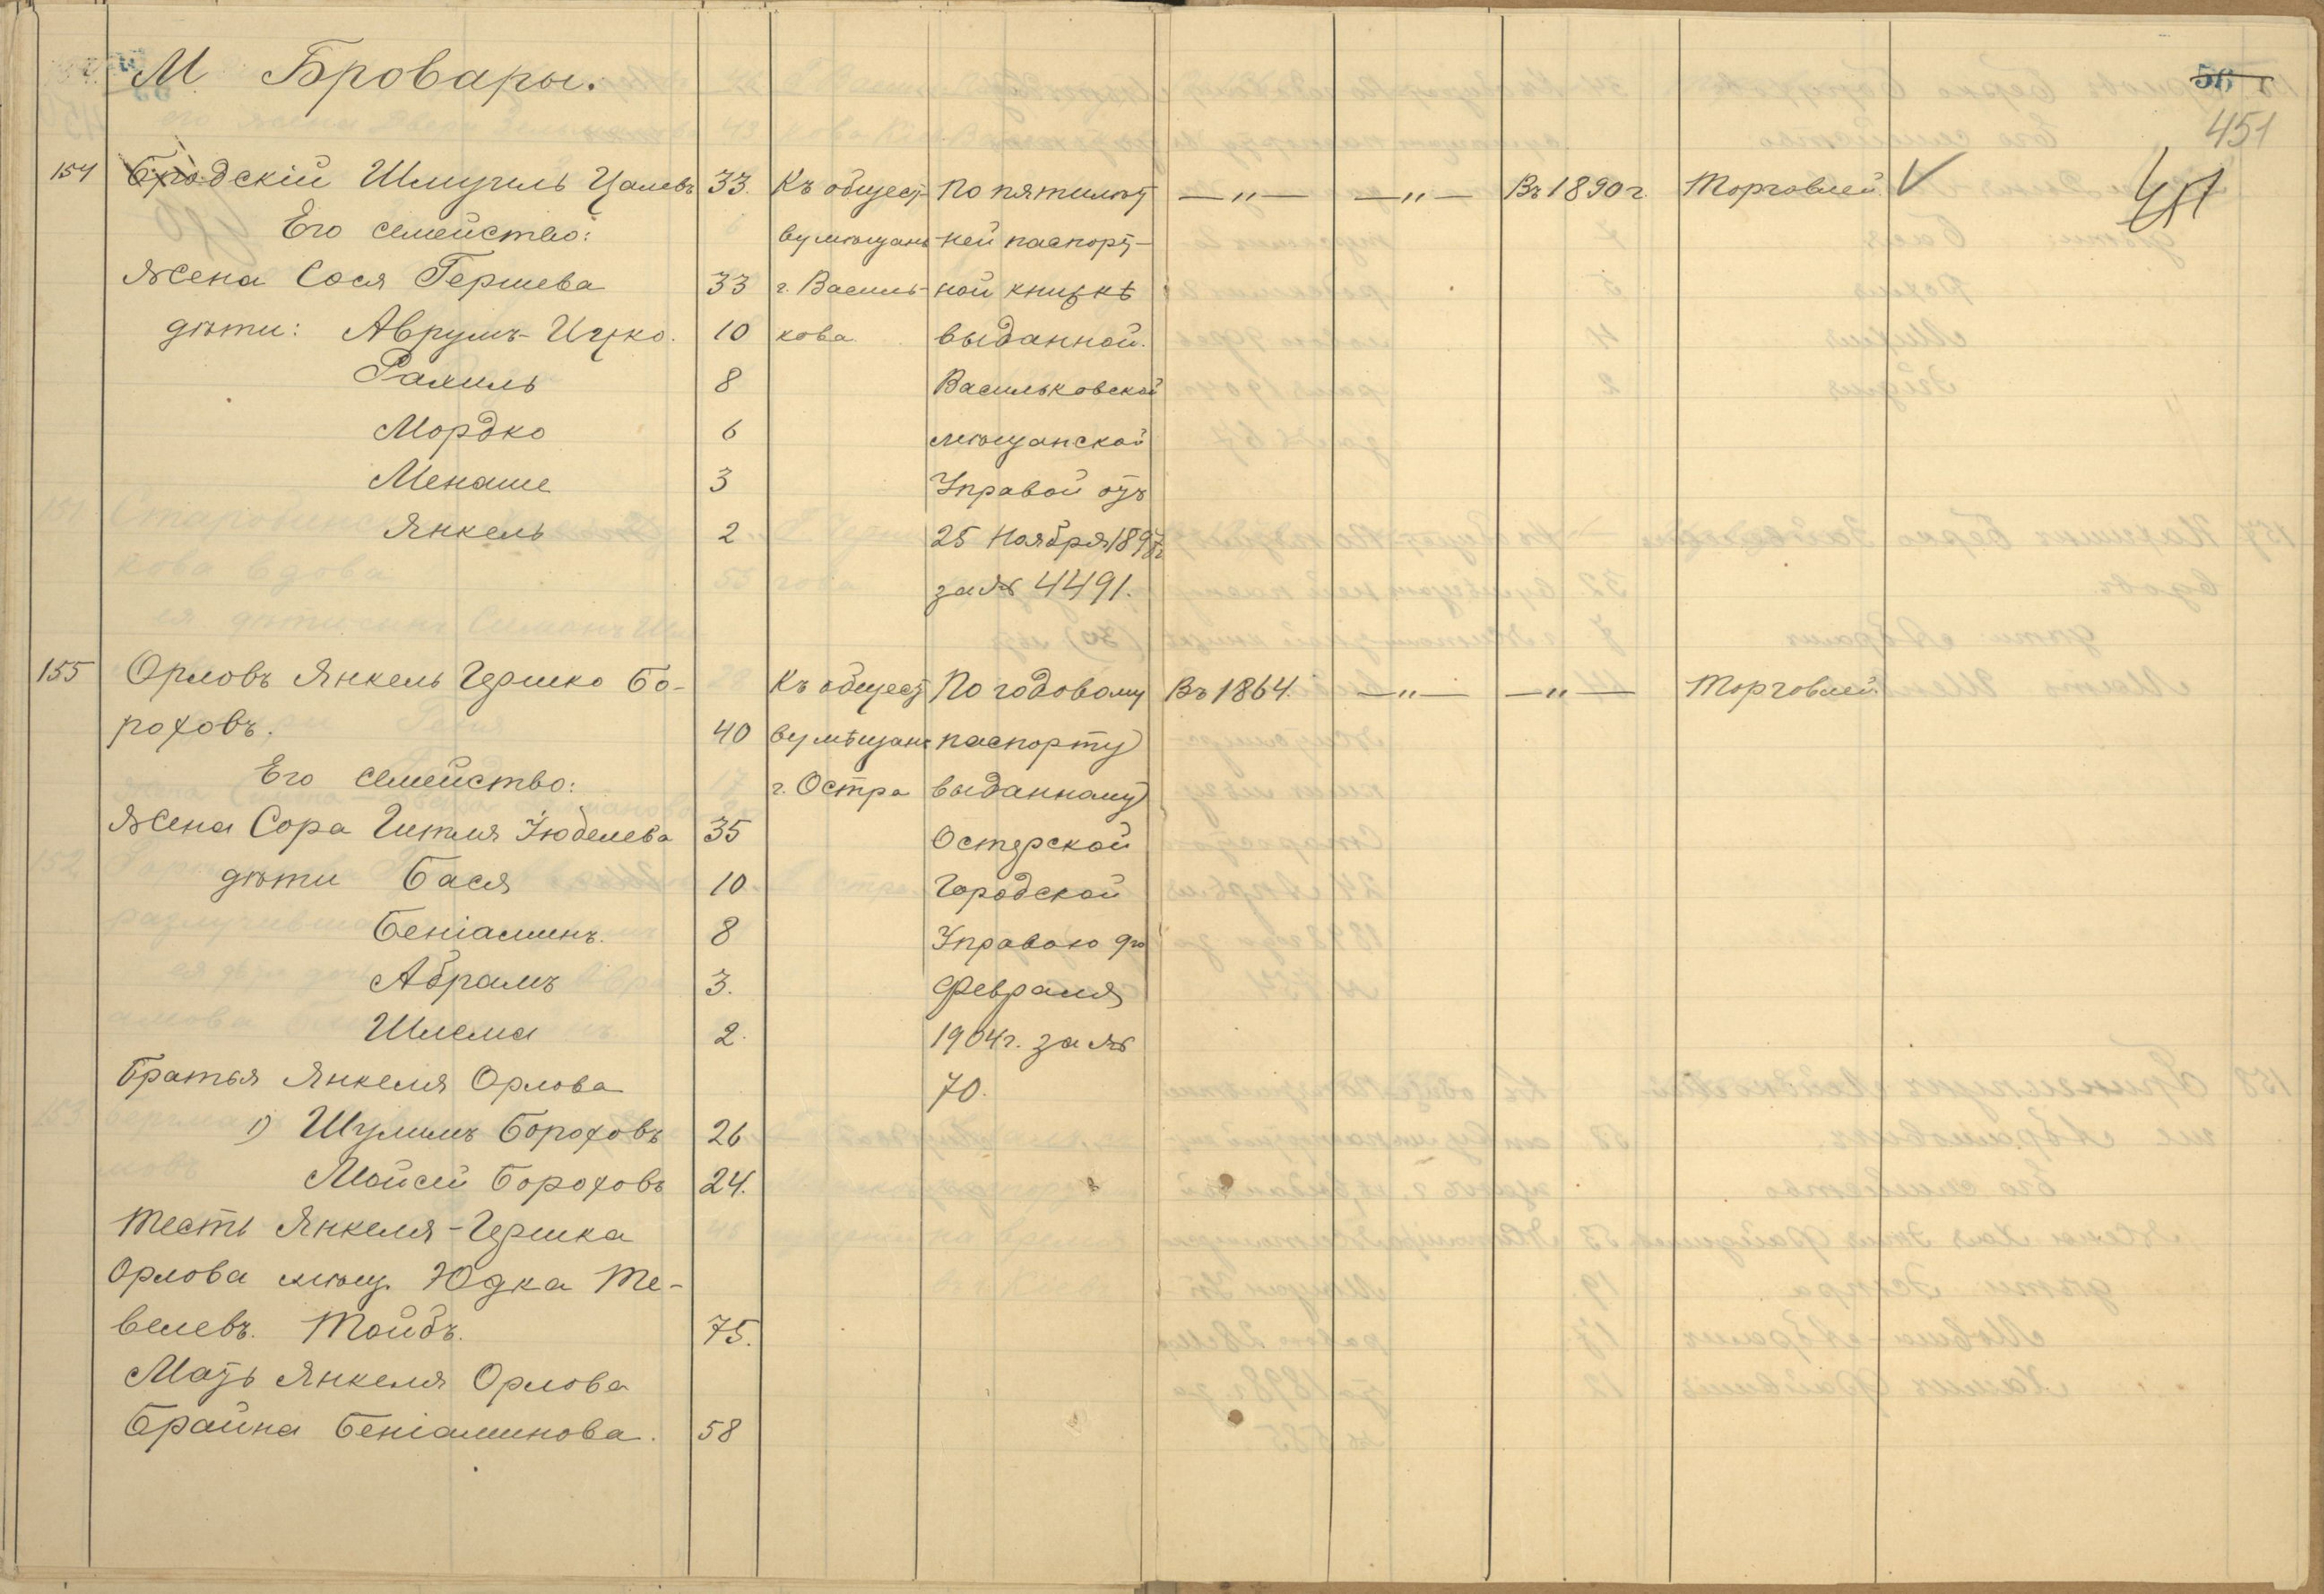 М Бровары.
56
451
154 Бродскій Шмуиль Цалевъ 33. Къ общест- По пятилѣт —„— —„— Въ 1890 г. Торговлей V
Его семейство: ву мѣщанъ -ней паспорт-
Жена Сося Гершева 33 г. Василь- ной книжкѣ
дѣти: Аврумъ-Ицко. 10 кова выданной.
Рахиль 8 Васильковской
Мордко 6 мѣщанской
Менаше 3 Управой отъ
Янкель 2 25 Ноября 1897г
за № 4491.
155 Орловъ Янкель Гершко Бо- Къ общест По годовому Въ 1864. —„— —„— Торговлей
роховъ. 40 ву мѣщанъ паспорту
Его семейство: г. Остра выданному
Жена Сора Гитля Іюделева 35 Остерской
дѣти Бася 10. Городской
Беніаминъ. 8 Управою 9го
Абрамъ 3. Февраля
Шлема 2. 1904г. за №
Братья Янкеля Орлова 70.
1) Шулимъ Бороховъ 26
Мойсей Бороховъ 24.
Тесть Янкеля-Гершка
Орлова мѣщ. Юдка Те-
велевъ. Тойбъ. 75.
Мать Янкеля Орлова
Брайна Беніаминова. 58